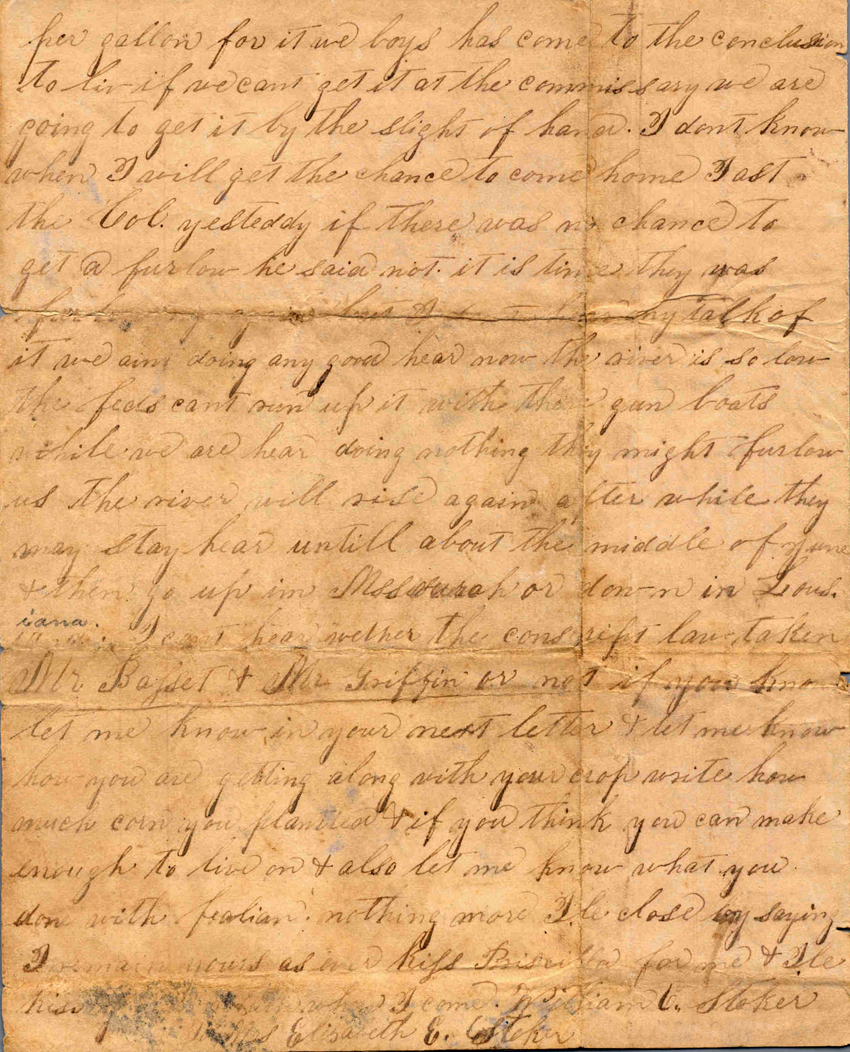 per gallon for it we boys has come to the conclusion
to liv if we cant get it at the commissary we are
going to get it by the slight of hand. I dont know
when I will get the chance to come home I ast
the Col. yesteddy if there was no chance to
get a furlow he said not. it is time they was
but I talk of
it we aint doing any good hear now the river is so low
the feds cant run up it with there gun boats
while we are hear doing nothing they might furlow
us the river will rise again after while they
may stay hear untill about the middle of June
& then go up in Missourah or down in Lous.
iana. I cant hear wether the conscript law taken
Mr Basset & Mr Griffin or not if you know
let me know in your next letter & let me know
how you are getting along with your crop write how
much corn you planted & if you think you can make
enough to live on & also let me know what you
done with nothing more Ile close by saying
I remain yours as ever kiss Priscilla for me & Ile
kiss when I come. William E. Stoker
To Mrs Elizabeth E. Stoker